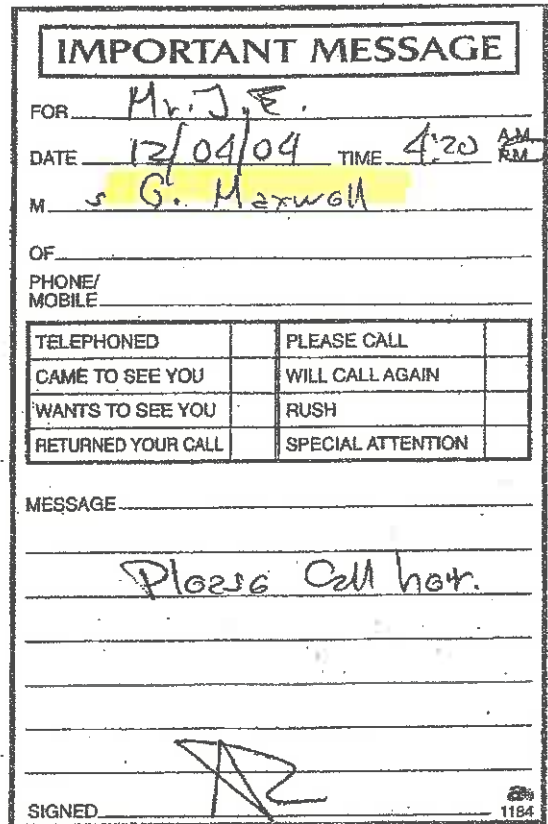 IMPORTANT MESSAGE
FOR Mr. J.E.
DATE 12/04/04 TIME 4:20 A.M. P.M.
M s G. Maxwell
OF
PHONE/
MOBILE
TELEPHONED PLEASE CALL
CAME TO SEE YOU WILL CALL AGAIN
WANTS TO SEE YOU RUSH
RETURNED YOUR CALL SPECIAL ATTENTION
MESSAGE
Please Call her.
SIGNED 1184